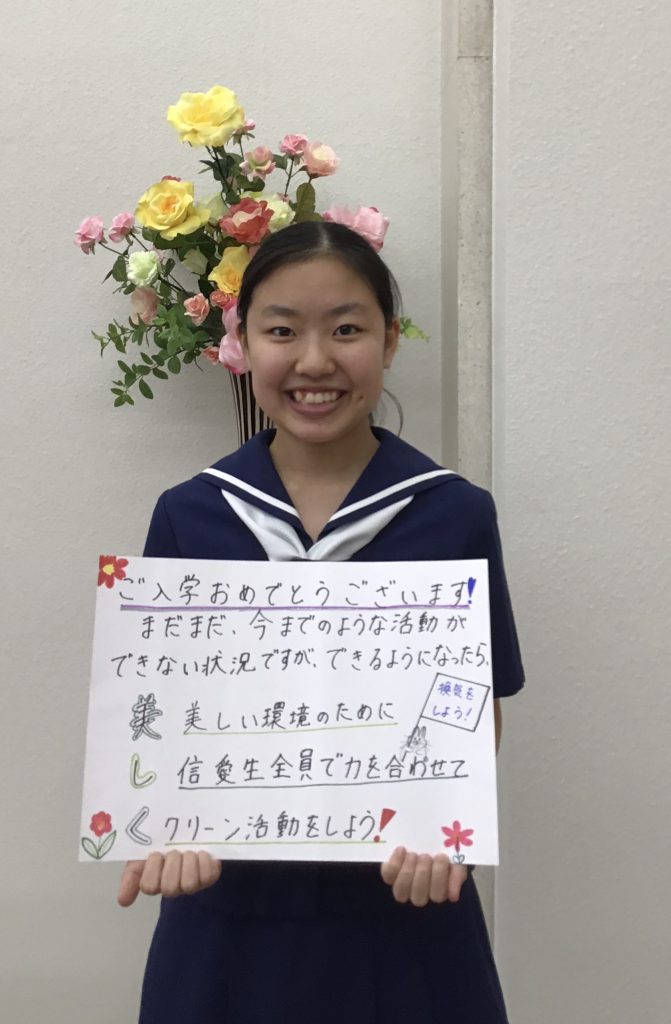 ご入学おめでとうございます!
まだまだ、今までのような活動が
できない状況ですが、できるようになったら、
美 美しい環境のために
換気を
しよう!
し 信愛生全員で力を合わせて
く クリーン活動をしよう!